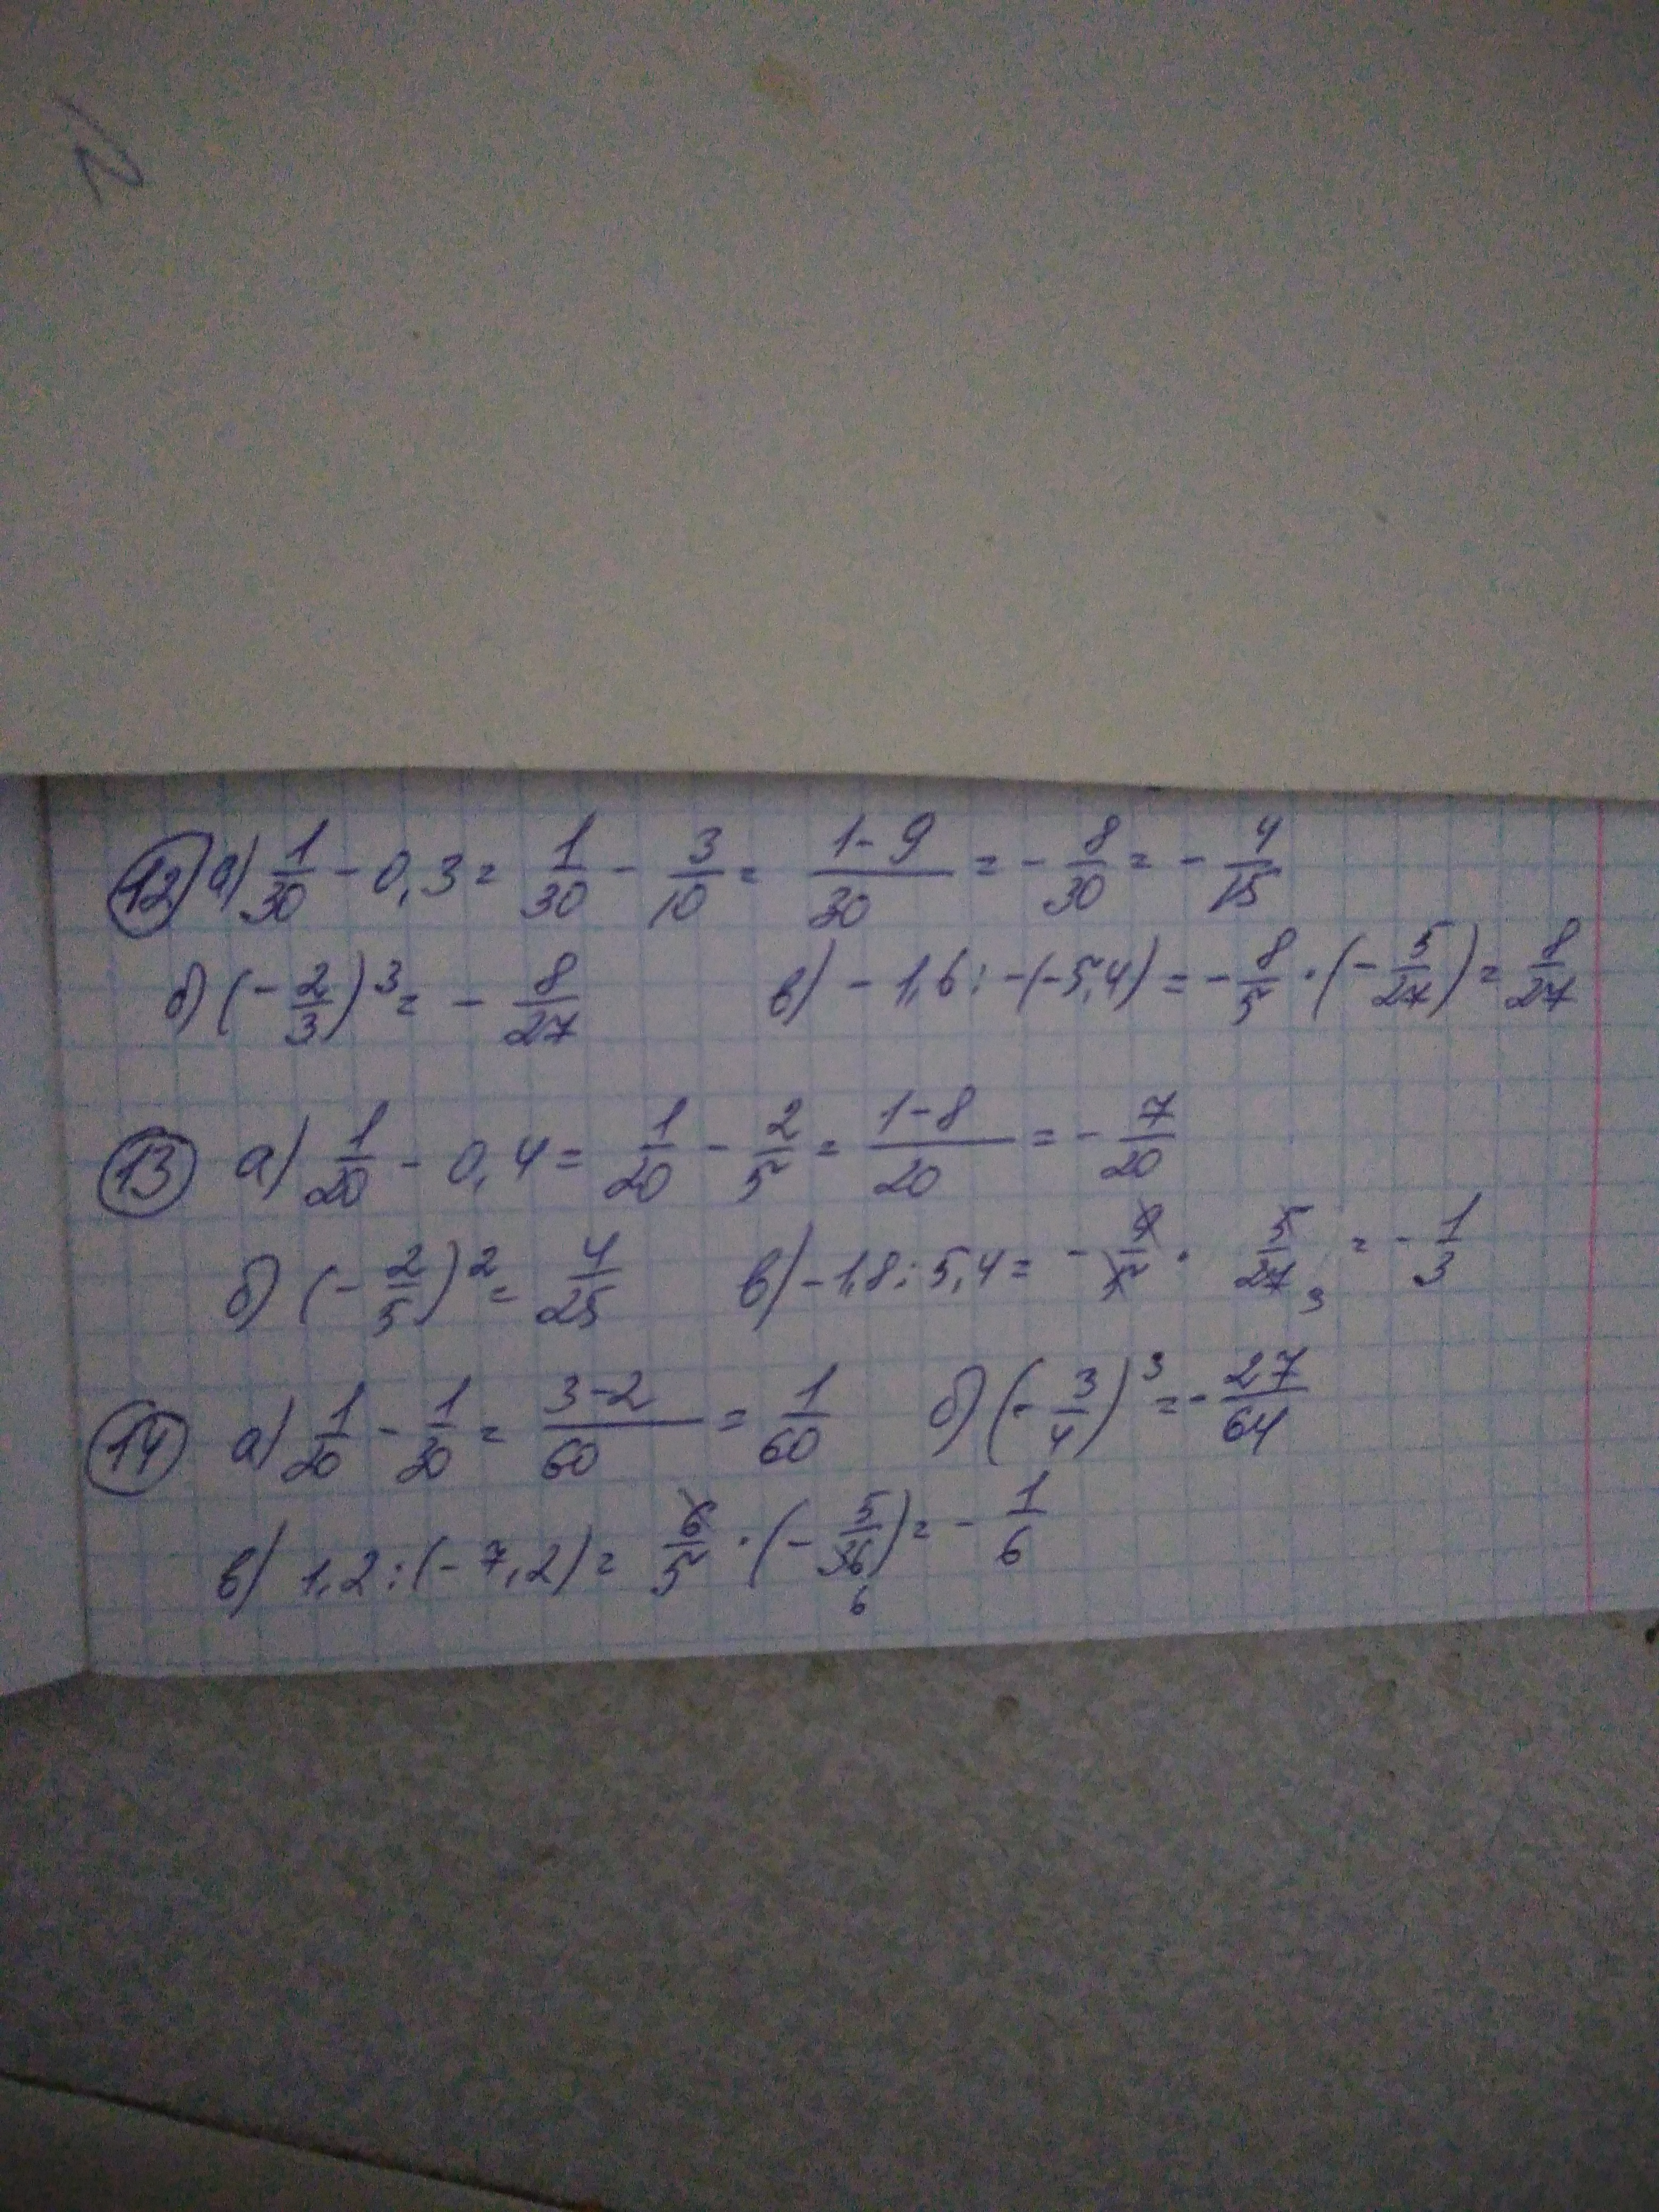 12) а) 1/30 - 0,3 = 1/30 - 3/10 = (1-9)/30 = - 8/30 = - 4/15
б) (- 2/3)³ = - 8/27 в) - 1,6 : -(-5,4) = - 8/5 · (- 5/27) = 8/27
13) а) 1/20 - 0,4 = 1/20 - 2/5 = (1-8)/20 = - 7/20
б) (- 2/5)² = 4/25 в) - 1,8 : 5,4 = - 9/5 · 5/27 3 = - 1/3
14) а) 1/20 - 1/30 = (3-2)/60 = 1/60 б) (- 3/4)³ = - 27/64
в) 1,2 : (- 7,2) = 6/5 · (- 5/36 6) = - 1/6